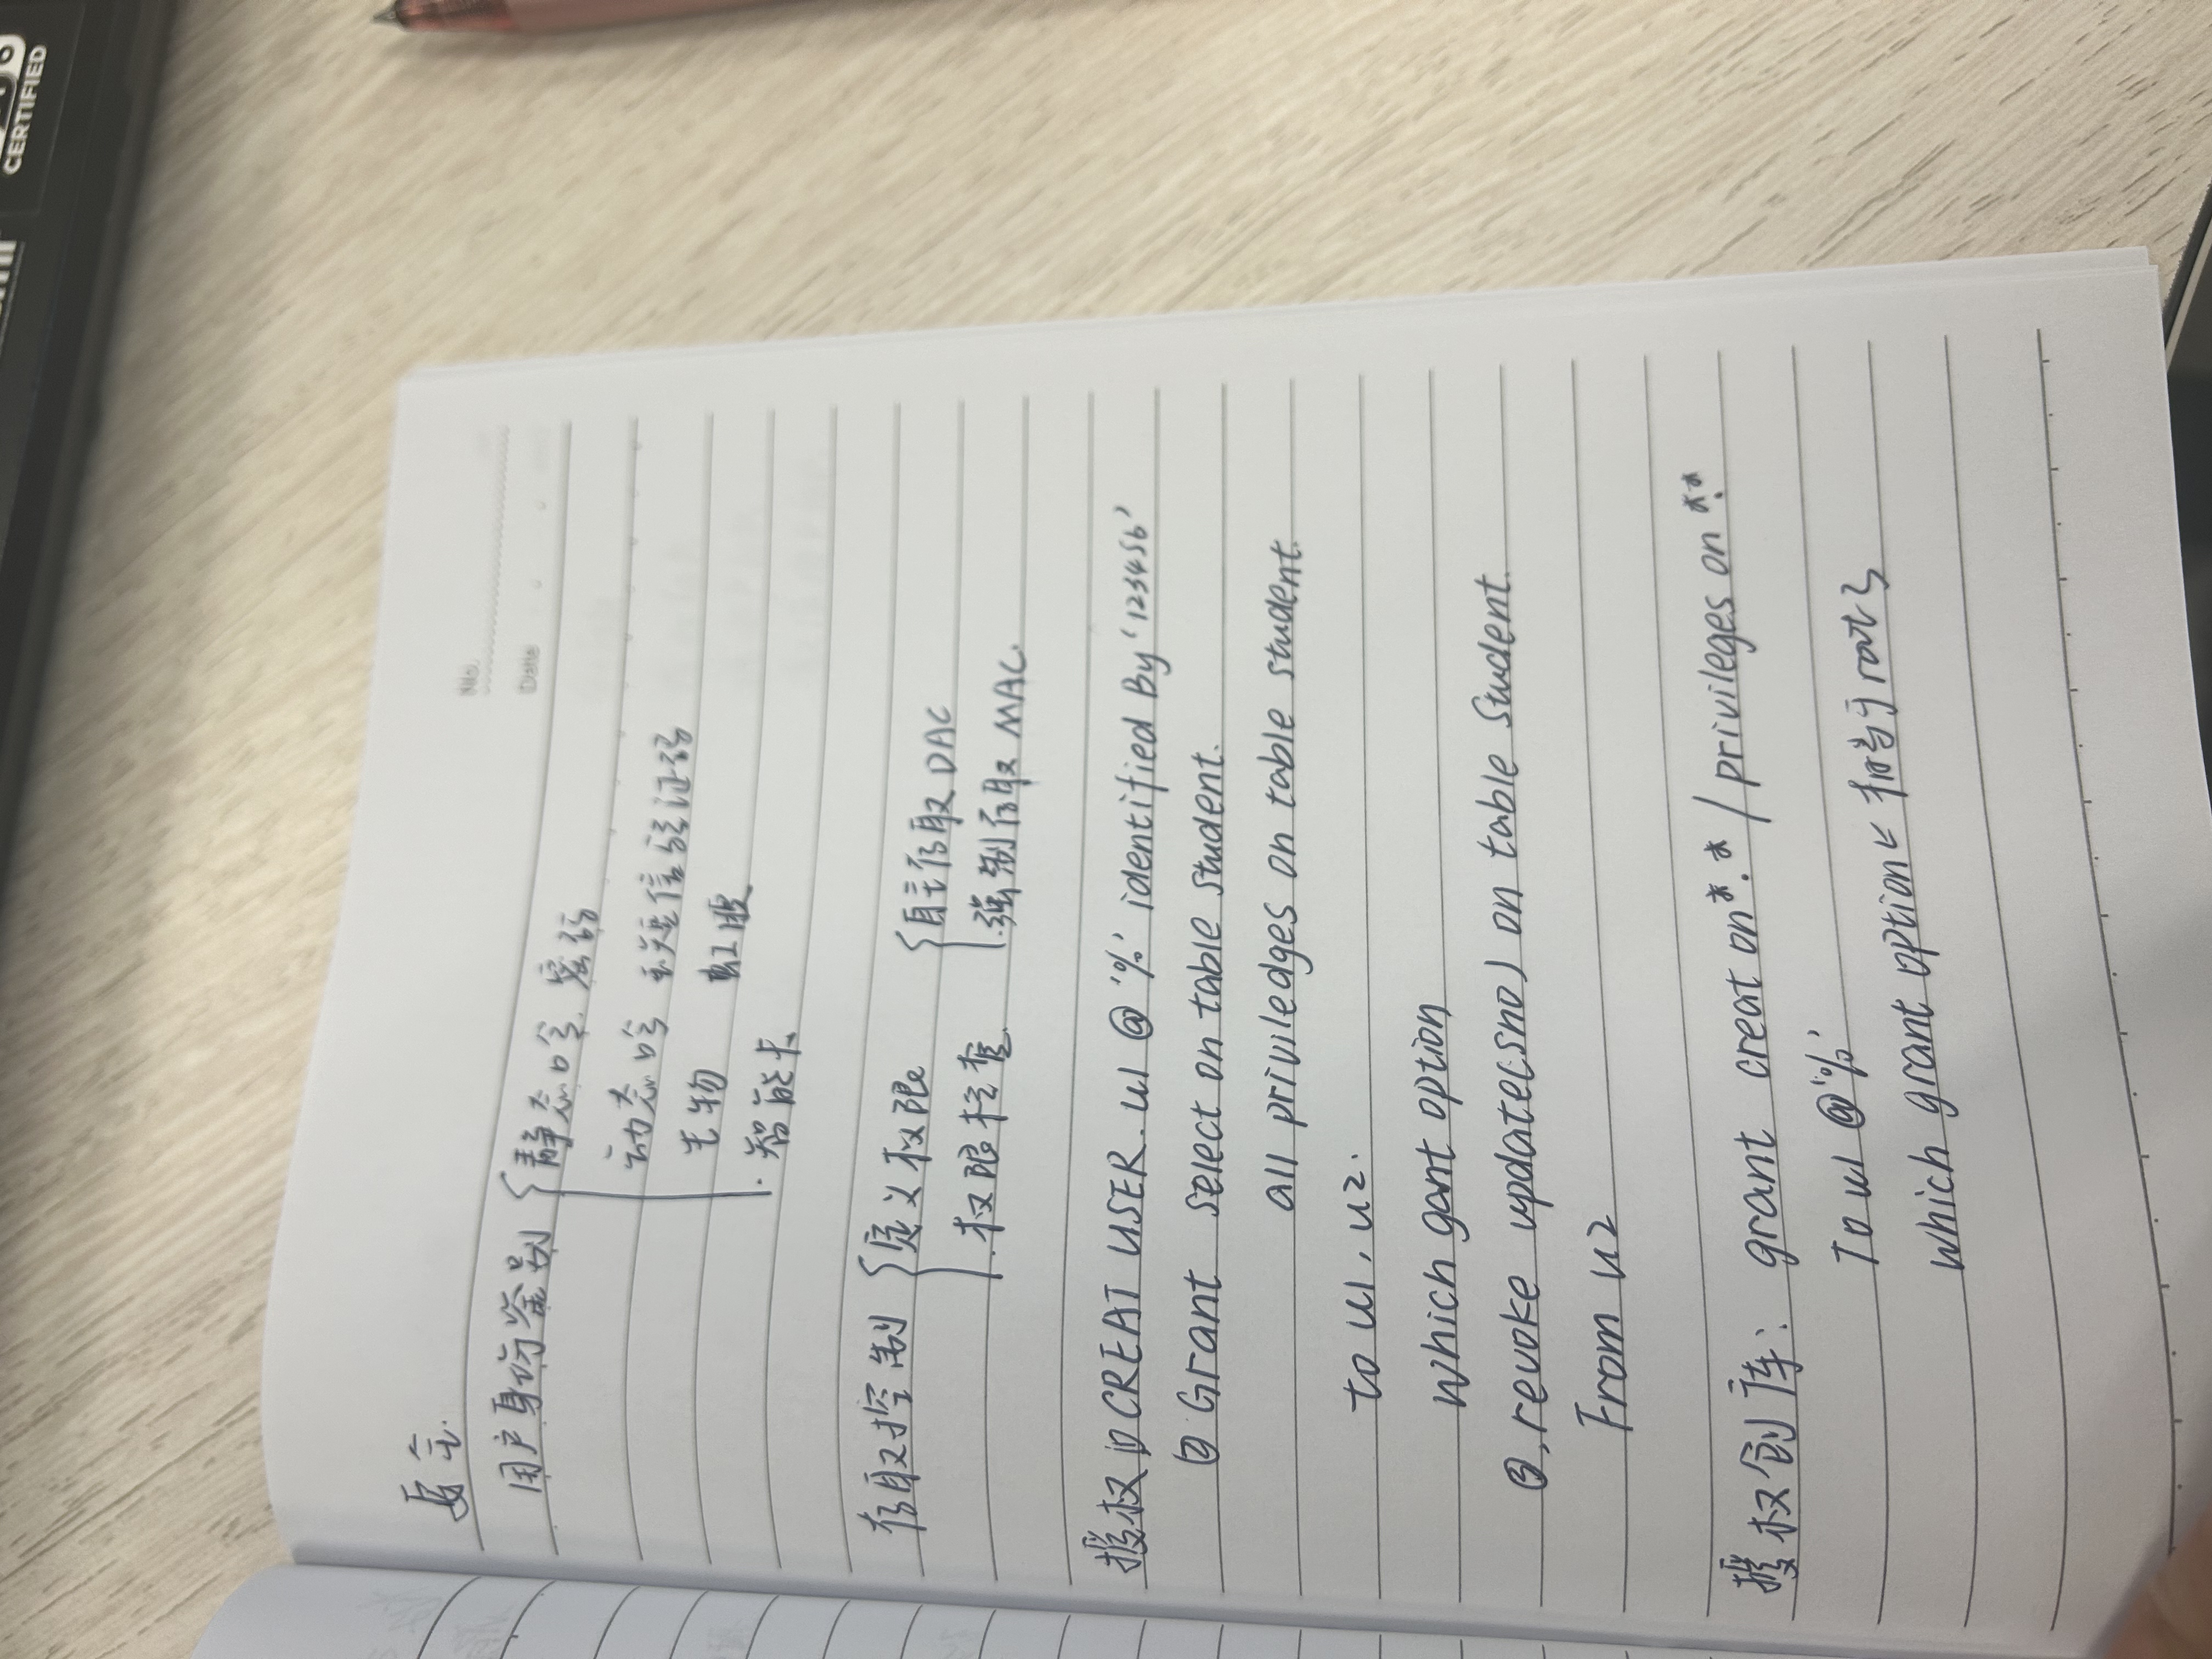 CERTIFIED
安全.
No.
Date
用户身份鉴别 { 静态口令 密码
动态口令 短信验证码
生物 虹膜
智能卡
存取控制 { 定义权限 { 自主存取 DAC
权限检查 强制存取 MAC.
授权 ① CREAT USER. u1 @ '%' identified By '123456'
② Grant select on table student.
all priviledges on table student.
to u1, u2.
which gant option
③. revoke update(sno) on table Student.
From u2
授权创库: grant creat on *.* / privileges on *.*
To u1 @ '%'
which grant option ← 相当于root了